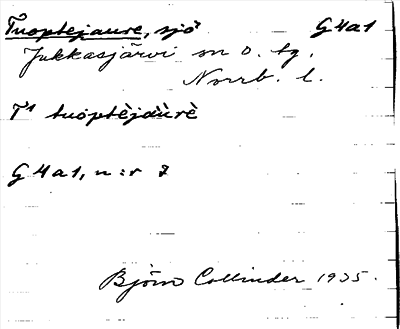 Tuoptejaure, sjö G4a1
Jukkasjärvi sn o. tg.
Norrb. l.
T1 tuòptèjäùrè
G4a1, n:r 7
Björn Collinder 1935.